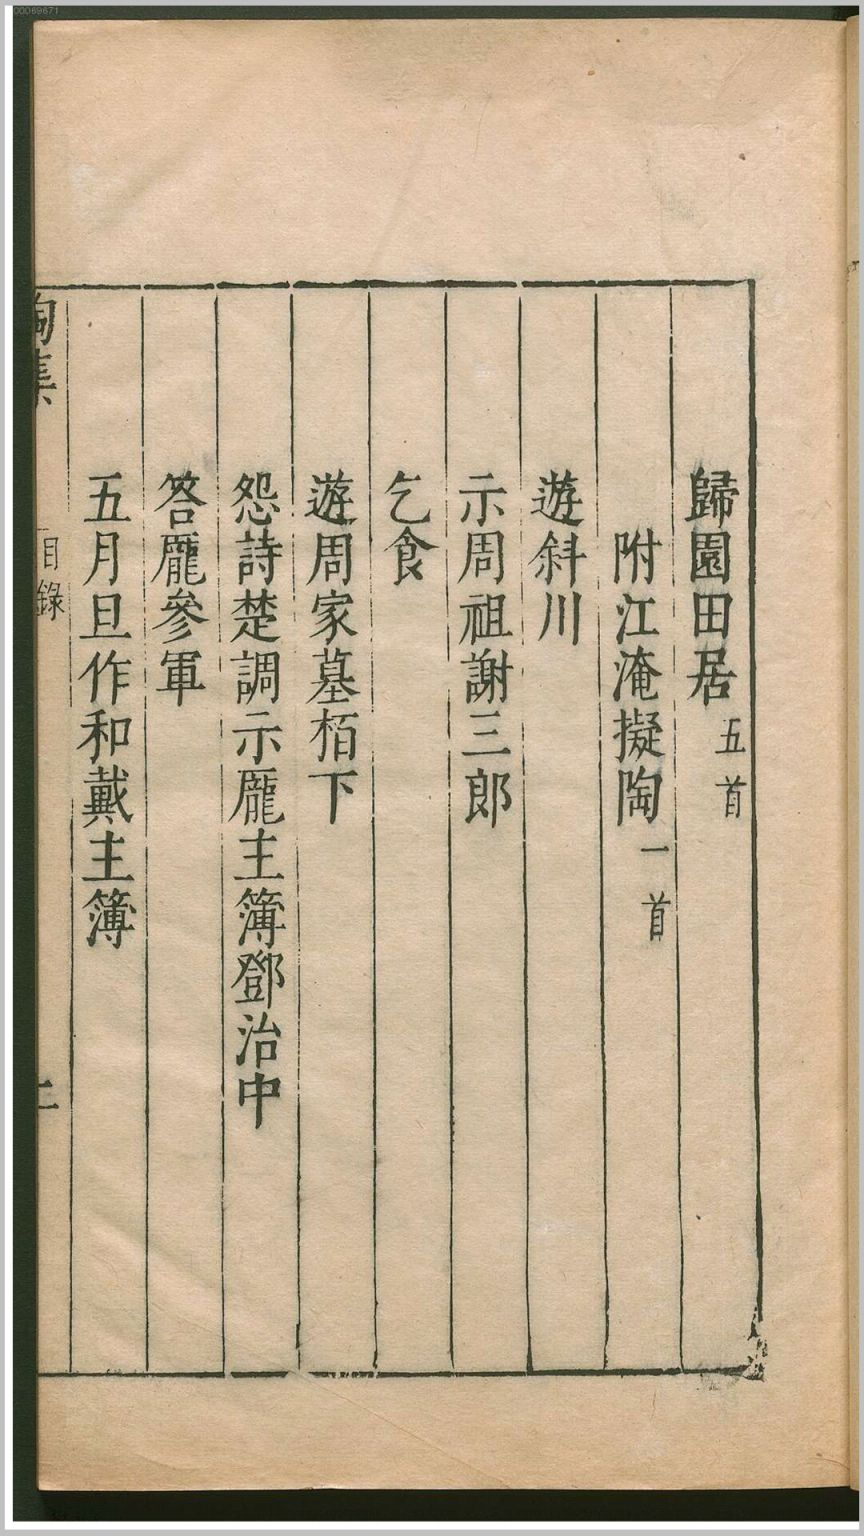 00069671
歸園田居五首
附江淹擬陶一首
遊斜川
示周祖謝三郎
乞食
遊周家墓栢下
怨詩楚調示龐主簿鄧治中
答龐參軍
五月旦作和戴主簿
陶集 目錄 二